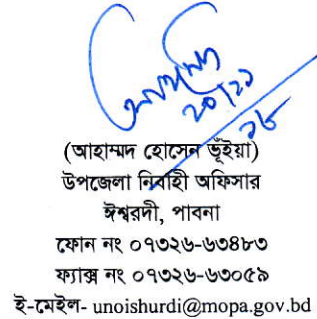 ২০/১২
১৮
(আহাম্মদ হোসেন ভূঁইয়া)
উপজেলা নির্বাহী অফিসার
ঈশ্বরদী, পাবনা
ফোন নং ০৭৩২৬-৬৩৪৮৩
ফ্যাক্স নং ০৭৩২৬-৬৩০৫৯
ই-মেইল- unoishurdi@mopa.gov.bd